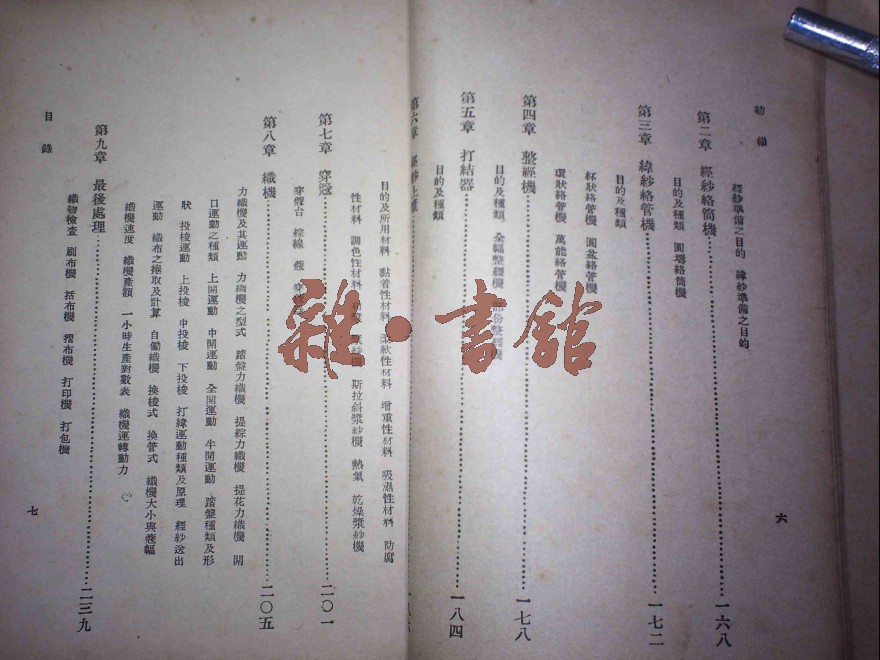 紡織
經紗準備之目的 緯紗準備之目的
第二章 經紗絡筒機 一六八
目的及種類 圓墻絡筒機
第三章 緯紗絡管機 一七二
目的及種類
杯狀絡管機 圓盆絡管機
環狀絡管機 萬能絡管機
第四章 整經機 一七八
目的及種類 全幅整經機 部份整經機
第五章 打結器 一八四
目的及種類
六
第六章 經紗上漿
目的及所用材料 黏着性材料 柔軟性材料 增重性材料 吸濕性材料 防腐
性材料 調色性材料 漿紗機 斯拉斜漿紗機 熱氣 乾燥漿紗機
第七章 穿蔻 二〇一
穿蔻台 綜線 蔻
第八章 織機 二〇五
力織機及其運動 力織機之型式 踏盤力織機 提綜力織機 提花力織機 開
口運動之種類 上開運動 中開運動 全開運動 半開運動 踏盤種類及形
狀 投梭運動 上投梭 中投梭 下投梭 打緯運動種類及原理 經紗送出
運動 織布之捲取及計算 自働織機 換梭式 換管式 織機大小與蔻幅
織機速度 織機產額 一小時生產對數表 織機運轉動力
第九章 最後處理 二三九
織物檢查 刷布機 括布機 摺布機 打印機 打包機
目錄
七
雜·書館